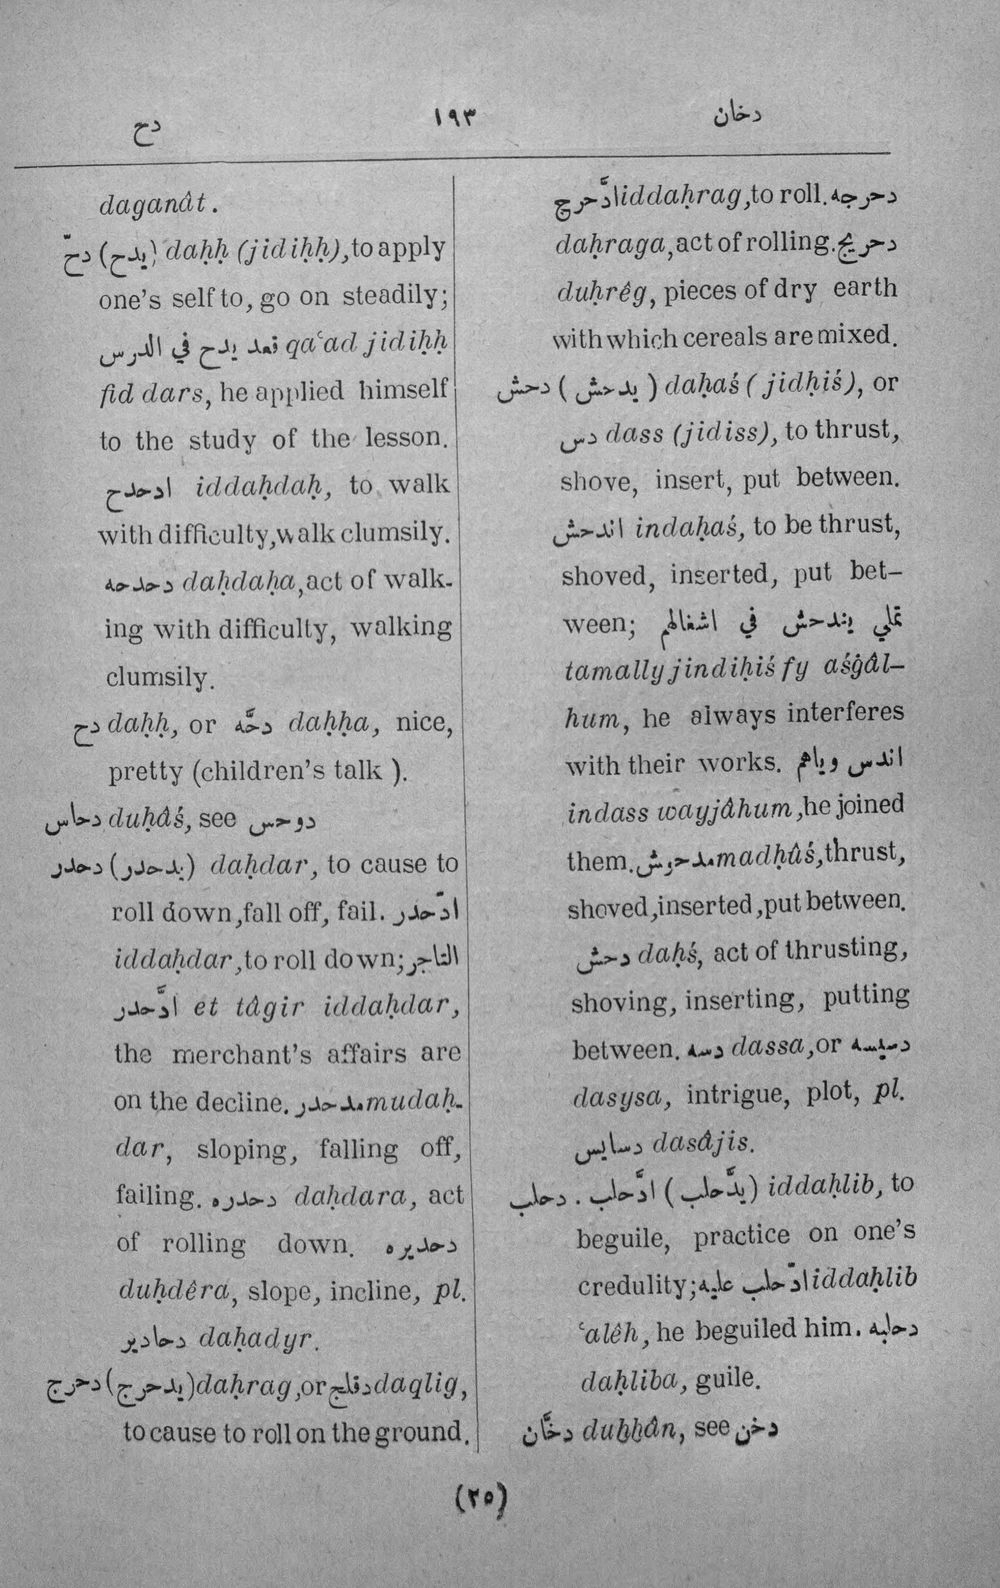 دح ١٩٣ دخان
daganât.
دحّ (يدح) daḥḥ (jidiḥḥ),to apply
one's self to, go on steadily;
قعد يدح في الدرس qa‘ad jidiḥḥ
fid dars, he applied himself
to the study of the lesson.
ادحدح iddaḥdaḥ, to walk
with difficulty,walk clumsily.
دحدحه daḥdaḥa,act of walk-
ing with difficulty, walking
clumsily.
دح daḥḥ, or دحَّه daḥḥa, nice,
pretty (children's talk ).
دحاس duḥâś, see دوحس
دحدر (يدحدر) daḥdar, to cause to
roll down,fall off, fail. ادّحدر
iddaḥdar,to roll down;التاجر
ادَّحدر et tâgir iddaḥdar,
the merchant's affairs are
on the decline. مدحدر mudaḥ-
dar, sloping, falling off,
failing. دحدره daḥdara, act
of rolling down. دحديره
duḥdêra, slope, incline, pl.
دحادير daḥadyr.
دحرج (يدحرج) daḥrag,or دقلج daqlig,
to cause to roll on the ground.
ادَّحرج iddaḥrag,to roll. دحرجه
daḥraga,act of rolling. دحريج
duḥrêg, pieces of dry earth
with which cereals are mixed.
دحش ( يدحش ) daḥaś ( jidḥiś), or
دس dass (jidiss), to thrust,
shove, insert, put between.
اندحش indaḥaś, to be thrust,
shoved, inserted, put bet-
ween; تملي يندحش في اشغالهم
tamally jindiḥiś fy aśġâl-
hum, he always interferes
with their works. اندس وياهم
indass wayjâhum,he joined
them. مدحوش madḥûś,thrust,
shoved,inserted,put between.
دحش daḥś, act of thrusting,
shoving, inserting, putting
between. دسه dassa,or دسيسه
dasysa, intrigue, plot, pl.
دسايس dasâjis.
دحلب . ادَّحلب (يدَّحلب ) iddaḥlib, to
beguile, practice on one's
credulity; ادّحلب عليه iddaḥlib
‘alêh, he beguiled him. دحلبه
daḥliba, guile.
دخَّان duḫḫân, see دخن
(٢٥)